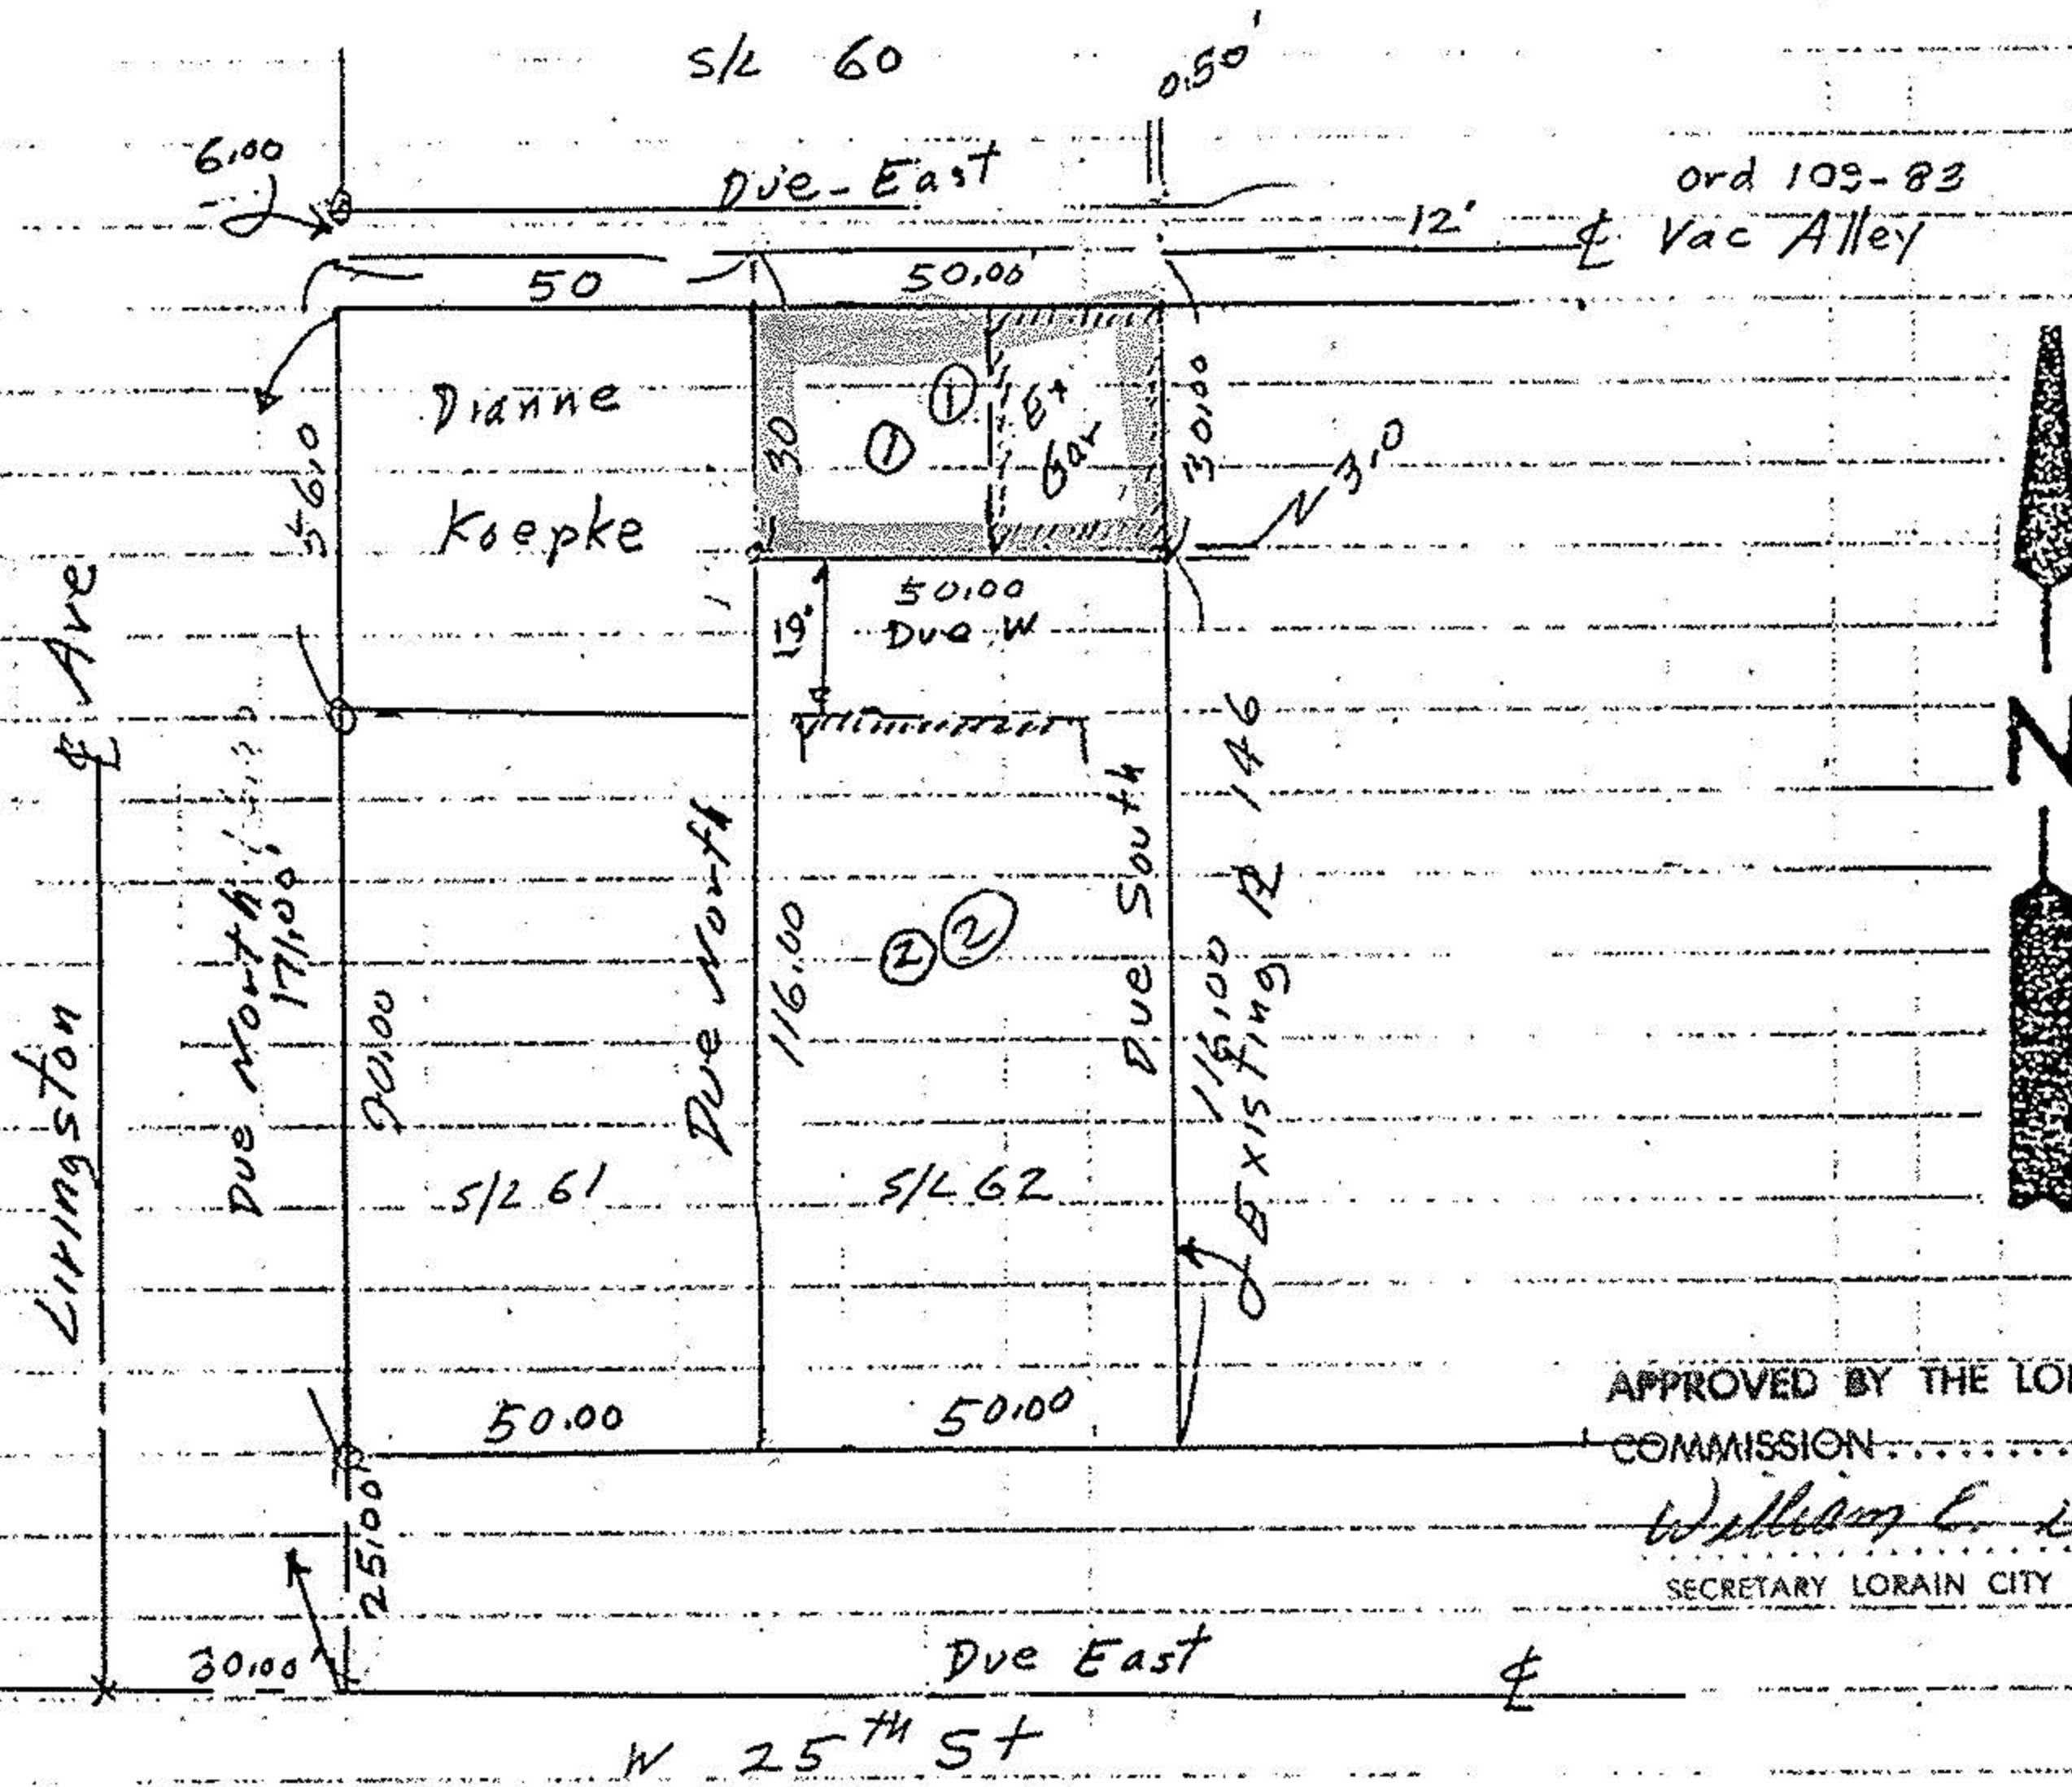 S/L 60
0.50'
6.00
Due-East
Ord 109-83
12'
℄ Vac Alley
50
50.00'
Dianne
Koepke
56.0
30
1
1
Ex
Gar
30.00
N 3.0
50.00
Due W
19'
℄ Ave
Livingston
Due North
171.00'
90.00
Due North
116.00
2
2
Due South
116.00
Existing R 146
N
S/L 61
S/L 62
50.00
50.00
25.00'
30.00'
APPROVED BY THE
COMMISSION
William E.
SECRETARY LORAIN CITY
Due East
℄
W 25th St